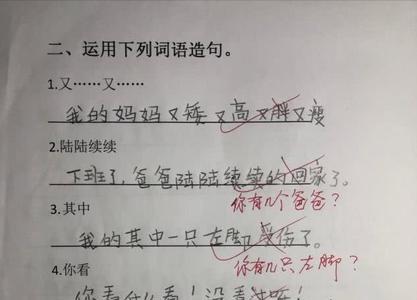 二、运用下列词语造句。
1.又……又……
我的妈妈又矮又高又胖又瘦
2.陆陆续续
下班了,爸爸陆陆续续的回家了。
你有几个爸爸?
3.其中
我的其中一只左脚受伤了。
你有几只左脚?
4.你看
你看什么看!没看过